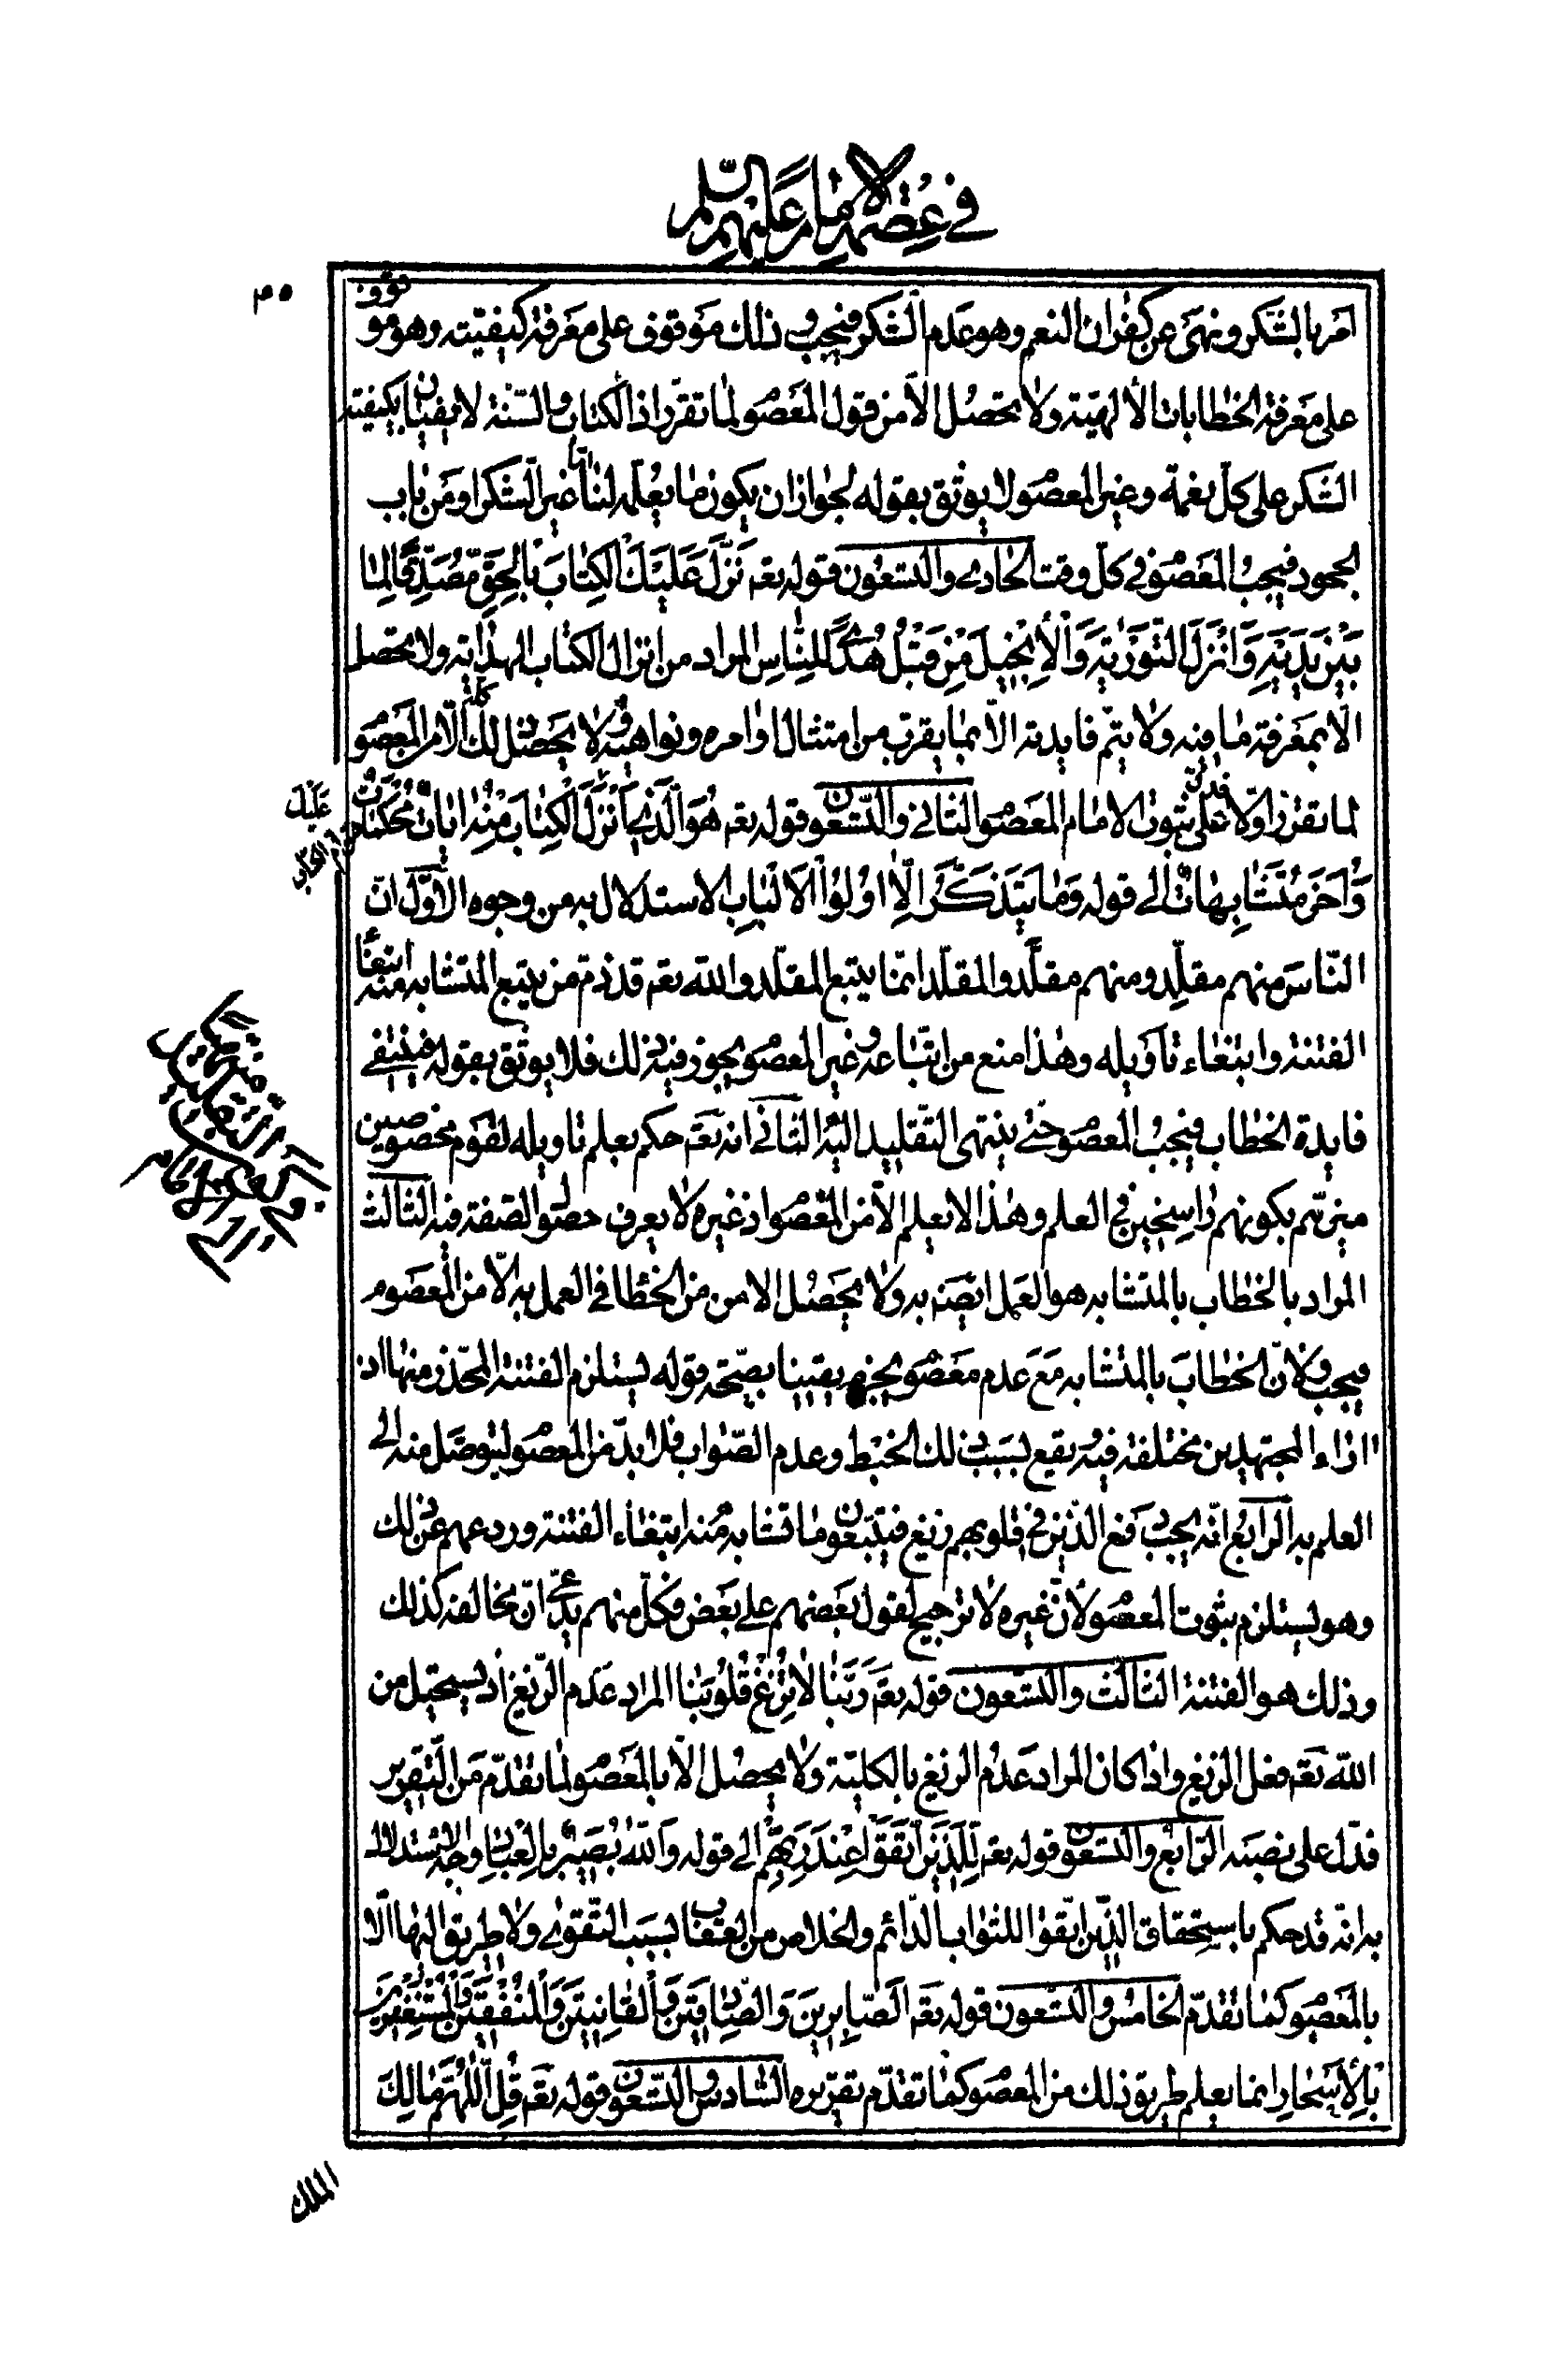 في عصمة الامام عليهم السلم
٣٥
امر بالشكر ونهى عن كفران النعم وهو عدم الشكر فيجب وذلك موقوف على معرفة كيفيته وهو موقوف
على معرفة الخطابات الالهيّة ولا يحصل الّا من قول المعصو لما تقرّر اذ الكتاب والسّنة لا يفيان بكيفيّة
الشكر على كلّ نعمة وغير المعصو لا يوثق بقوله لجواز ان يكون ما يعلّمه لنا امّا غير الشكر او من باب
الجحود فيجب المعصو في كل وقت الحادي والتسعون قوله تعه نَزَّلَ عَلَيْكَ الْكِتابَ بِالْحَقِّ مُصَدِّقًا لِما
بَيْنَ يَدَيْهِ وَاَنْزَلَ التَّوْرٰيةَ وَالْاِنْجيلَ مِنْ قَبْلُ هُدًى لِلنّاسِ المراد من انزال الكتاب الهداية ولا يحصل
الّا بمعرفة ما فيه ولا يتم فايدته الّا بما يقرب من امتثال اوامره ونواهيه ولا يحصل ذلك كله الّا من المعصو
لما تقرّر اوّلا فدلّ على ثبوت الامام المعصو الثاني والتّسعون قوله تعه هُوَ الَّذي اَنْزَلَ عَلَيْكَ الْكِتابَ مِنْهُ اياتٌ مُحْكَماتٌ هنّ امّ الكتاب
وَاُخَرُ مُتَشابِهاتٌ الى قوله وَما يَتَذَكَّرُ اِلّا اوُلُوا الْاَلْبابِ الاستدلال به من وجوه الاوّل انّ
النّاس منهم مقلِّد ومنهم مقلَّد والمقلّد انّما يتبع المقلّد والله تعه قد ذمّ من يتبع المتشابه منه ابتغاء
الفتنة وابتغاء تأويله وهذا منع من اتّباعه وغير المعصو يجوز فيه ذلك فلا يوثق بقوله فينتفي
فايدة الخطاب فيجب المعصو حتى ينتهى التقليد اليه الثاني انه تعه حكم بعلم تاويله لقوم مخصوصين
ميزتهم بكونهم راسخين في العلم وهذا لا يعلم الّا من المعصو اذ غيره لا يعرف حصول الصفة فيه الثالث
المراد بالخطاب بالمتشابه هو العمل ايضه به ولا يحصل الامن من الخطا في العمل به الّا من المعصوم
فيجب ولانّ الخطاب بالمتشابه مع عدم معصو يجزم يقينا بصحّة قوله يستلزم الفتنة المحذر منها اذ
اراء المجتهدين مختلفة فيه ويقع بسبب ذلك الخبط وعدم الصّواب فلا بدّ من المعصو ليتوصّل منه الى
العلم به الرابع انّه يجب دفع الّذين في قلوبهم زيغ فيتّبعون ما تشابه منه ابتغاء الفتنة وردعهم عن ذلك
وهو يستلزم ثبوت المعصو لانّ غيره لا ترجيح لقول بعضهم على بعض فكلّ منهم يدّعي انّ مخالفه كذلك
وذلك هو الفتنة الثالث والتسعون قوله تعه رَبَّنا لا تُزِغْ قُلُوبَنا المراد عدم الزيغ اذ يستحيل من
الله تعه فعل الزيغ واذا كان المراد عدم الزيغ بالكليّة ولا يحصل الّا بالمعصو لما تقدّم من التقرير
فدّل على نصبه الرّابع والتسعون قوله تعه لِلَّذينَ اتَّقَوْا عِنْدَ رَبِّهِمْ الى قوله وَاللهُ بَصيرٌ بِالْعِبادِ وجه الاستدلال
به انّه قد حكم باستحقاق الّذين اتقوا للثواب الدّائم والخلاص من العقاب بسبب التّقوى ولا طريق اليها الّا
بالمعصو كما تقدّم الخامس والتسعون قوله تعه اَلصّابِرينَ وَالصّادِقينَ وَالْقانِتينَ وَالْمُنْفِقينَ وَالْمُسْتَغْفِرينَ
بِالْاَسْحارِ انما يعلم طريق ذلك من المعصو كما تقدّم تقريره السّادس والتّسعون قوله تعه قُلِ اللّهُمَّ مالِكَ
الملك